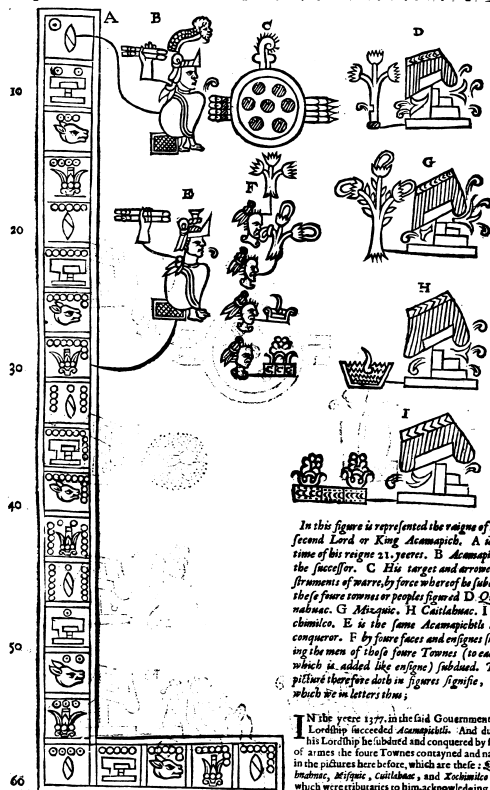 A
B
C
D
10
G
E
F
20
H
30
I
40
In this figure is repreſented the raigne of
ſecond Lord or King Acamapich. A
time of his reigne 21. yeeres. B
the ſucceſſor. C His target and
ſtruments of warre, by force whereof he
theſe foure townes or peoples figured D
nahuac. G Mizquic. H Caitlahuac. I
chimilco. E is the ſame Acamapichtli
conqueror. F by foure faces and enſignes
ing the men of thoſe foure Townes (to
which is added like enſigne) ſubdued.
picture therefore doth in figures ſignifie,
which we in letters thus;
50
IN the yeere 1377. in the ſaid
Lordſhip ſucceeded Acamapichtli. And
his Lordſhip he ſubdued and conquered by
of armes the foure Townes contayned and
in the pictures here before, which are theſe:
60
bnahuac, Miſquic, Cuitlahuac, and Xochimilco
which were tributaries to him, acknowledging